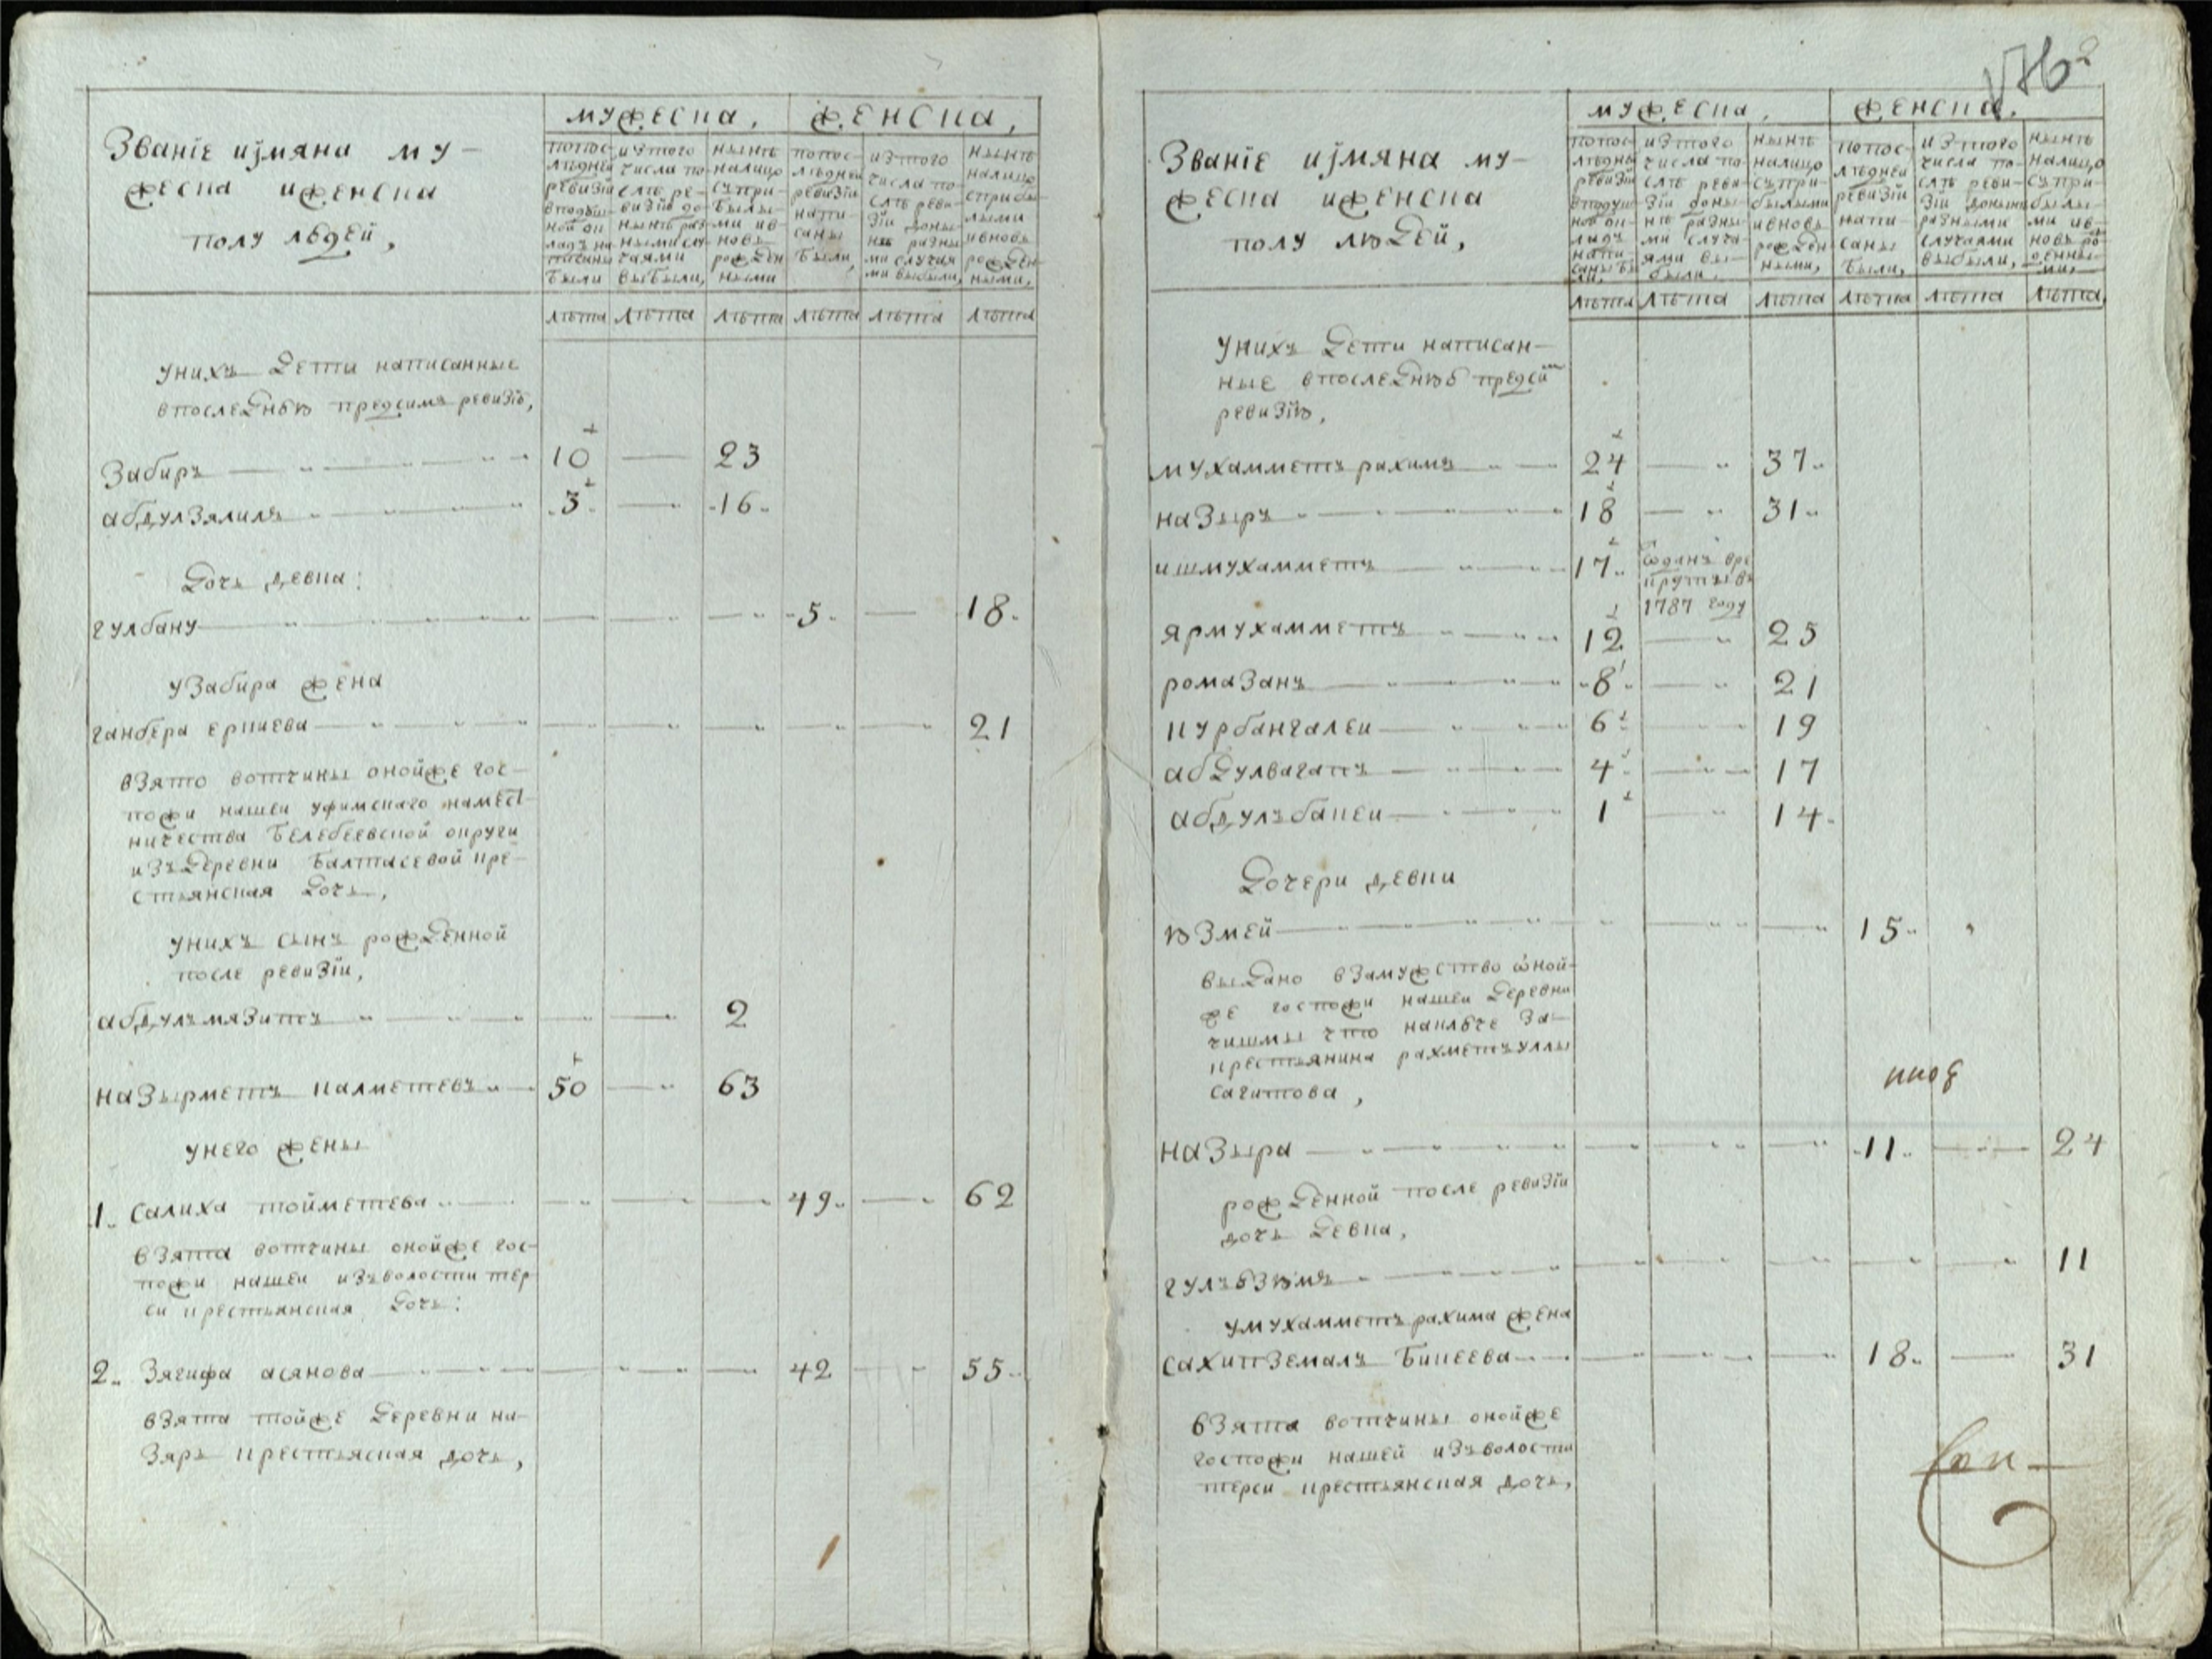 Званіе и имяна му-
жеска и женска
полу людей,
мужеска,
женска,
попос-
лѣдней
ревизіи
в подуш-
ной ок-
ладъ на-
писаны
были
из того
числа по-
слѣ ре-
визіи до-
нынѣ раз-
ными слу-
чаями
выбыли,
нынѣ
налицо
съ при-
былы-
ми ив-
новь
рожден
ными
попос-
лѣдней
ревизіи
напи-
саны
были,
из того
числа по-
слѣ реви-
зіи доны-
нѣ разны
ми случая
ми выбыли,
нынѣ
налицо
с прибы-
лыми
ивновь
рожден-
ными,
лѣта лѣта лѣта лѣта лѣта лѣта
у нихъ дети написанные
в последнюю предсимъ ревизію,
Забиръ 10 23
абдулзялилъ 3 16
дочь девка:
гулбану 5 18
у Забира жена
ганбера еркаева 21
взято вотчины оной же гос-
пожи нашеи уфимскаго намест-
ничества Белебеевской округи
изъ деревни Балтасевой кре-
стьянская дочь,
у нихъ сынъ рожденной
после ревизіи,
абдулъмязитъ 2
назырметъ калметевъ 50 63
у него жены
1. салиха тойметева 49 62
взята вотчины оной же гос-
пожи нашеи изъ волости тер
си крестьянская дочь:
2. Зягифа асянова 42 55
взята той же деревни ка-
Заръ крестьяская дочь,
176
Званіе и имяна му-
жеска и женска
полу людей,
мужеска,
женска,
попос-
лѣдней
ревизіи
в подуш-
ной ок-
ладъ
напи-
саны бы-
ли,
из того
числа по-
слѣ реви-
зіи доны-
нѣ разны
ми случа-
ями вы-
были,
нынѣ
налицо
съ при-
былыми
ивновь
рожден
ными,
попос-
лѣдней
ревизіи
напи-
саны
были,
из того
числа по-
слѣ реви-
зіи донынѣ
разными
случаями
выбыли,
нынѣ
налицо
съ при-
былы-
ми ив-
новь ро-
жденны-
ми,
лѣта лѣта лѣта лѣта лѣта лѣта,
у нихъ дети написан-
ные в последнюю предсимъ
ревизію,
мухамметъ рахимъ 24 37
назыръ 18 31
ишмухамметъ 17 ѿданъ вре
круты въ
1787 году
ярмухамметъ 12 25
ромазанъ 8 21
курбангалеи 6 19
абдулвагапъ 4 17
абдулъбакеи 1 14
дочери девки
юзмей 15
выдано в замужство оной-
же госпожи нашеи деревни
чишмы что наключе за
крестьянина рахметъуллы
сагитова,
назыра 11 24
рожденной после ревизіи
дочь девка,
гулъбзюмъ 11
у мухамметъ рахима жена
сахипземалъ Бикеева 18 31
взята вотчины оной же
госпожи нашей изъ волости
терси крестьянская дочь,